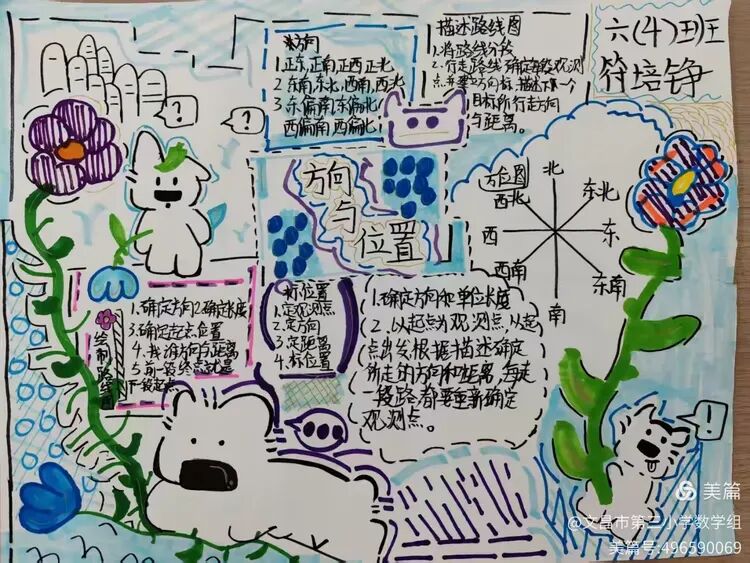 方向
1.正东,正南,正西,正北
2.东南,东北,西南,西北
3.东偏南,东偏北
西偏南,西偏北
描述路线图
1.将路线分段
2.行走路线确定每段观测
点,
目标所行走方向
与距离。
六(4)班
符培铮
?
?
方向
与
位置
方位图
北
西北
东北
西
东
西南
东南
南
绘制路线图
1.确定方向2.确定长度
3.确定起点位置
4.找准方向与距离
5.前一段终点就是
下一段起点
标位置
1.定观测点
2.定方向
3.定距离
4.标位置
1.确定方向和单位长度
2.以起点为观测点,从起
点出发,根据描述确定
所走的方向和距离,每走
一段路都要重新确定
观测点。
!
美篇
@文昌市第三小学数学组
美篇号:496590069